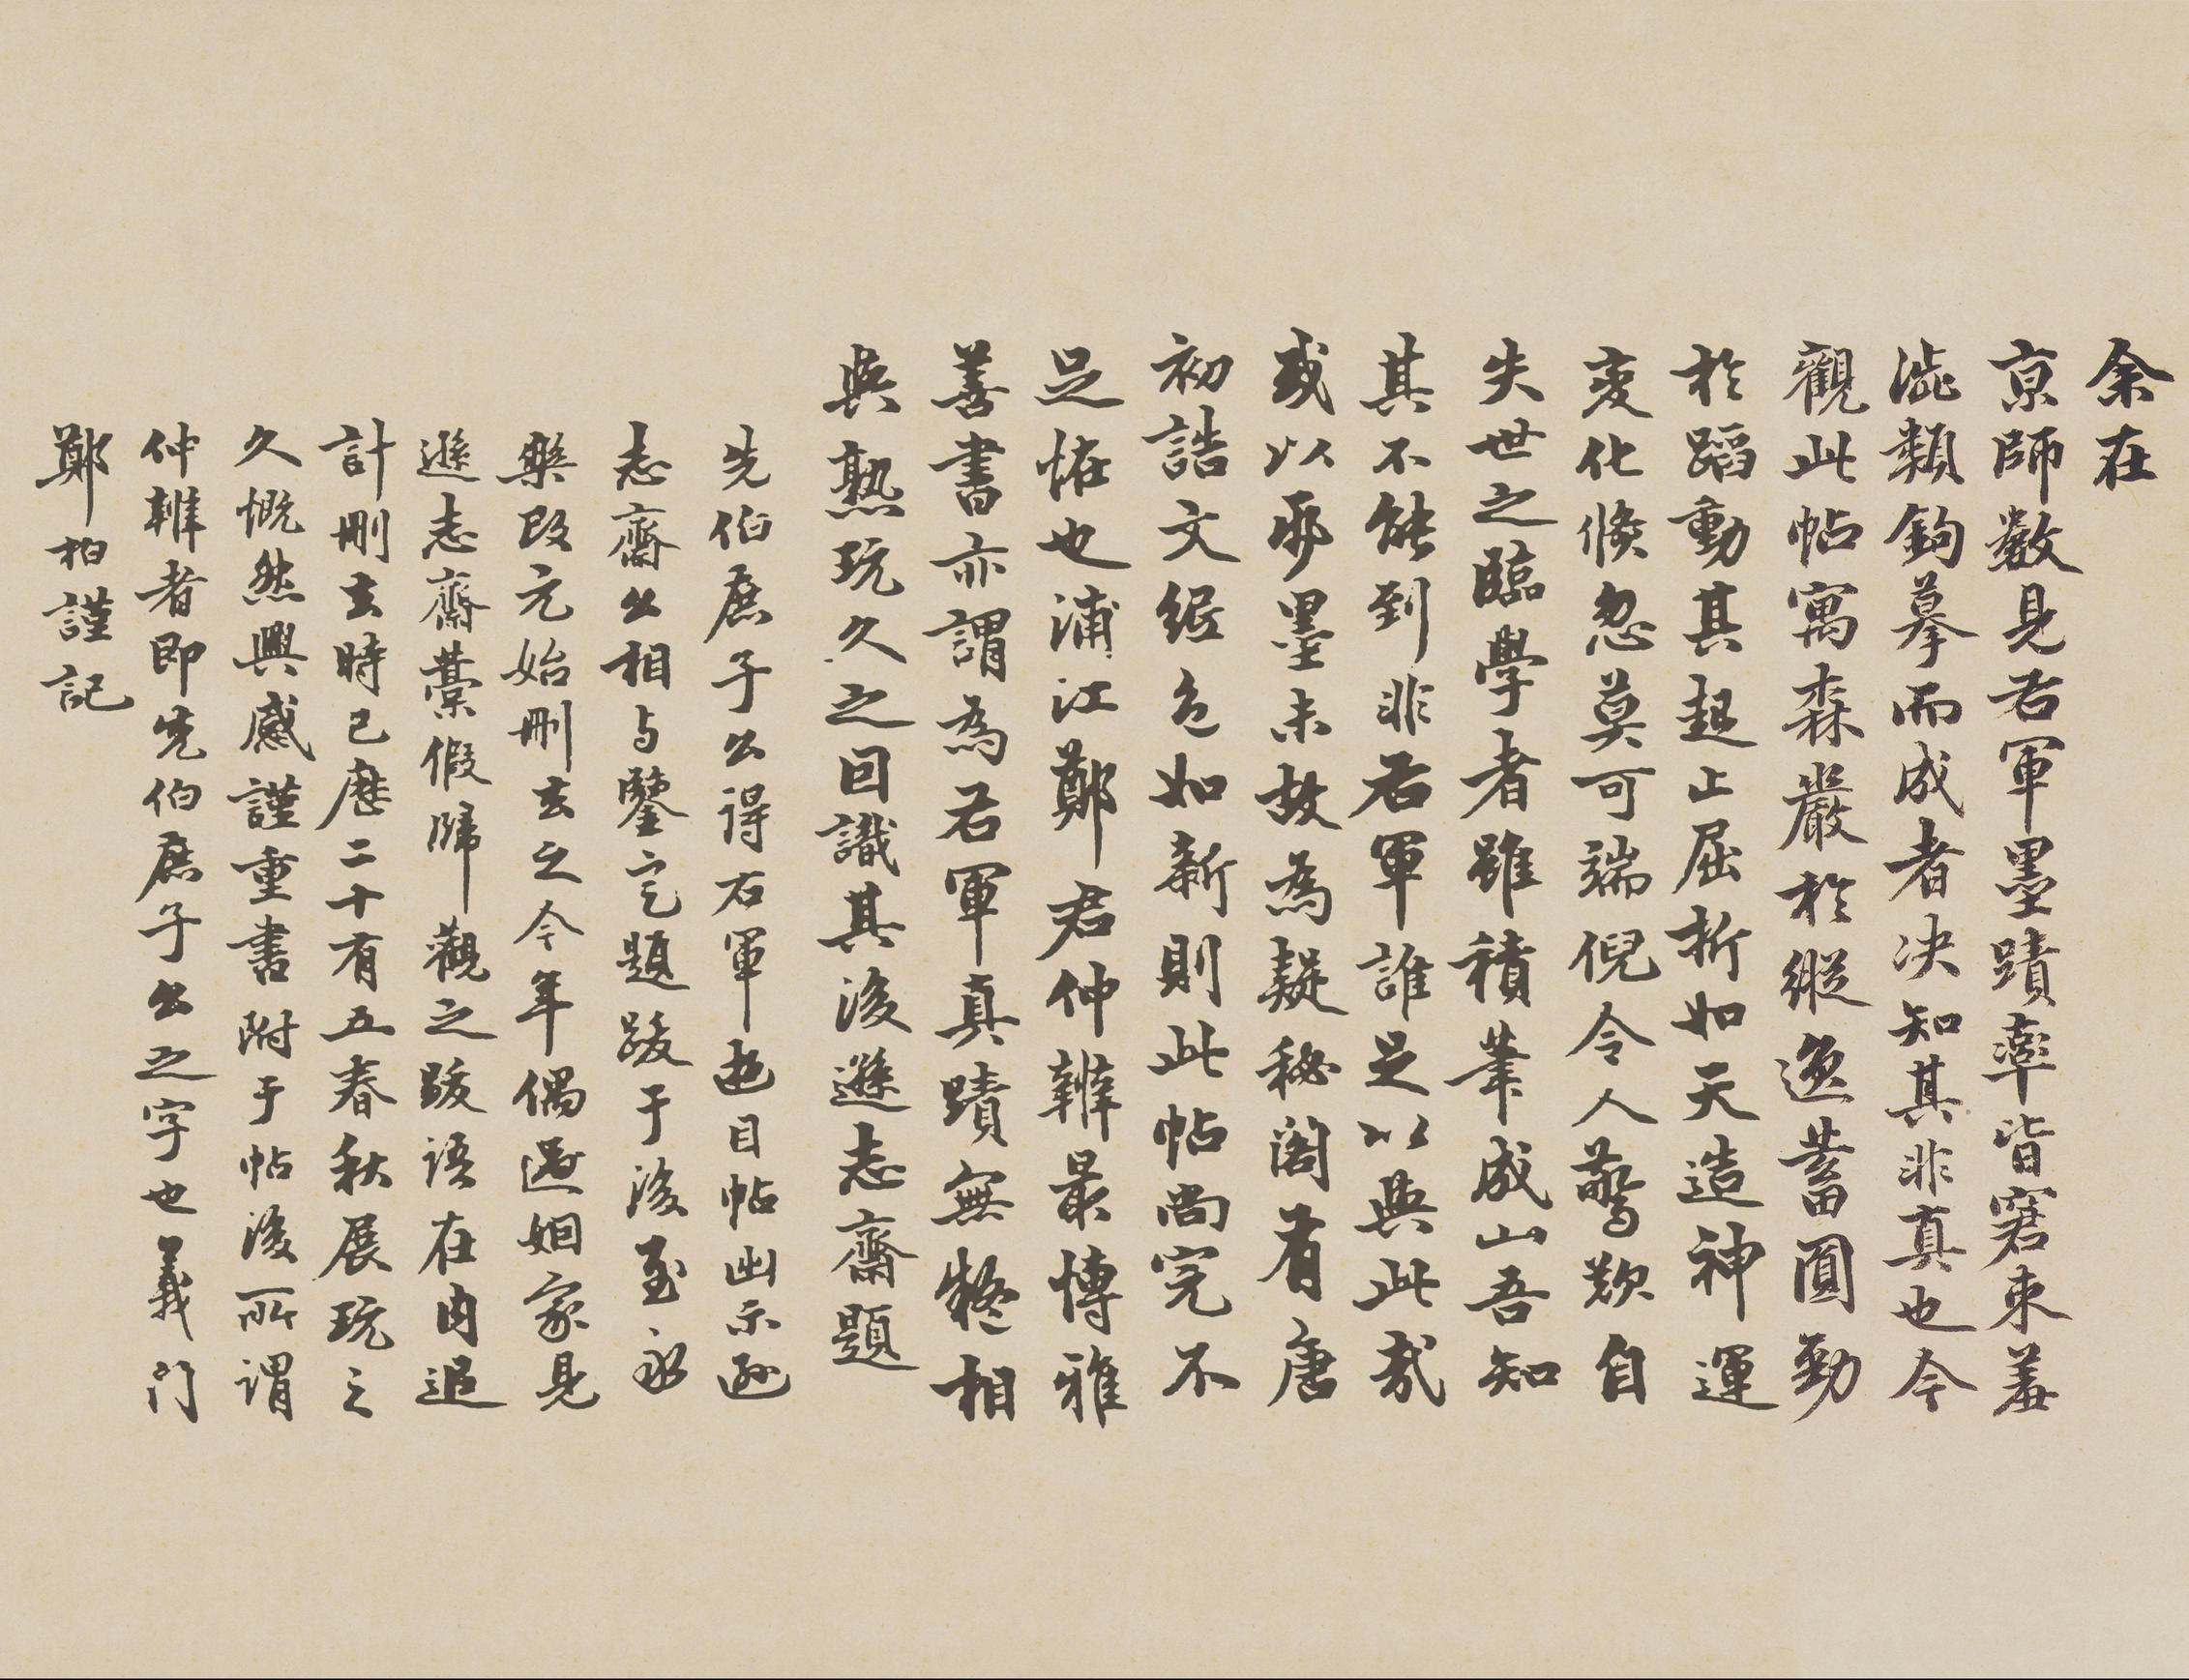 余在
京師數見右軍墨蹟率皆窘束羞
澁類鉤摹而成者決知其非真也今
觀此帖寓森嚴於縱逸蓄圓勁
於蹈動其起止屈折如天造神運
變化倏忽莫可端倪令人驚歎自
失世之臨學者雖積筆成山吾知
其不能到非右軍誰足以與此哉
或以爲墨未故為疑秘閣有唐
初誥文綬色如新則此帖尚完不
足怪也浦江鄭君仲辨最博雅
善書亦謂為右軍真蹟無疑相
與熟玩久之因識其後遜志齋題
先伯庶子公得右軍遊目帖出示遜
志齋公相与鑒定題跋于後至永
樂改元始刪去之今年偶過姻家見
遜志齋藁假歸觀之跋語在內追
計刪去時已歷二十有五春秋展玩之
久慨然興感謹重書附于帖後所謂
仲辨者即先伯庶子公之字也義門
鄭柏謹記